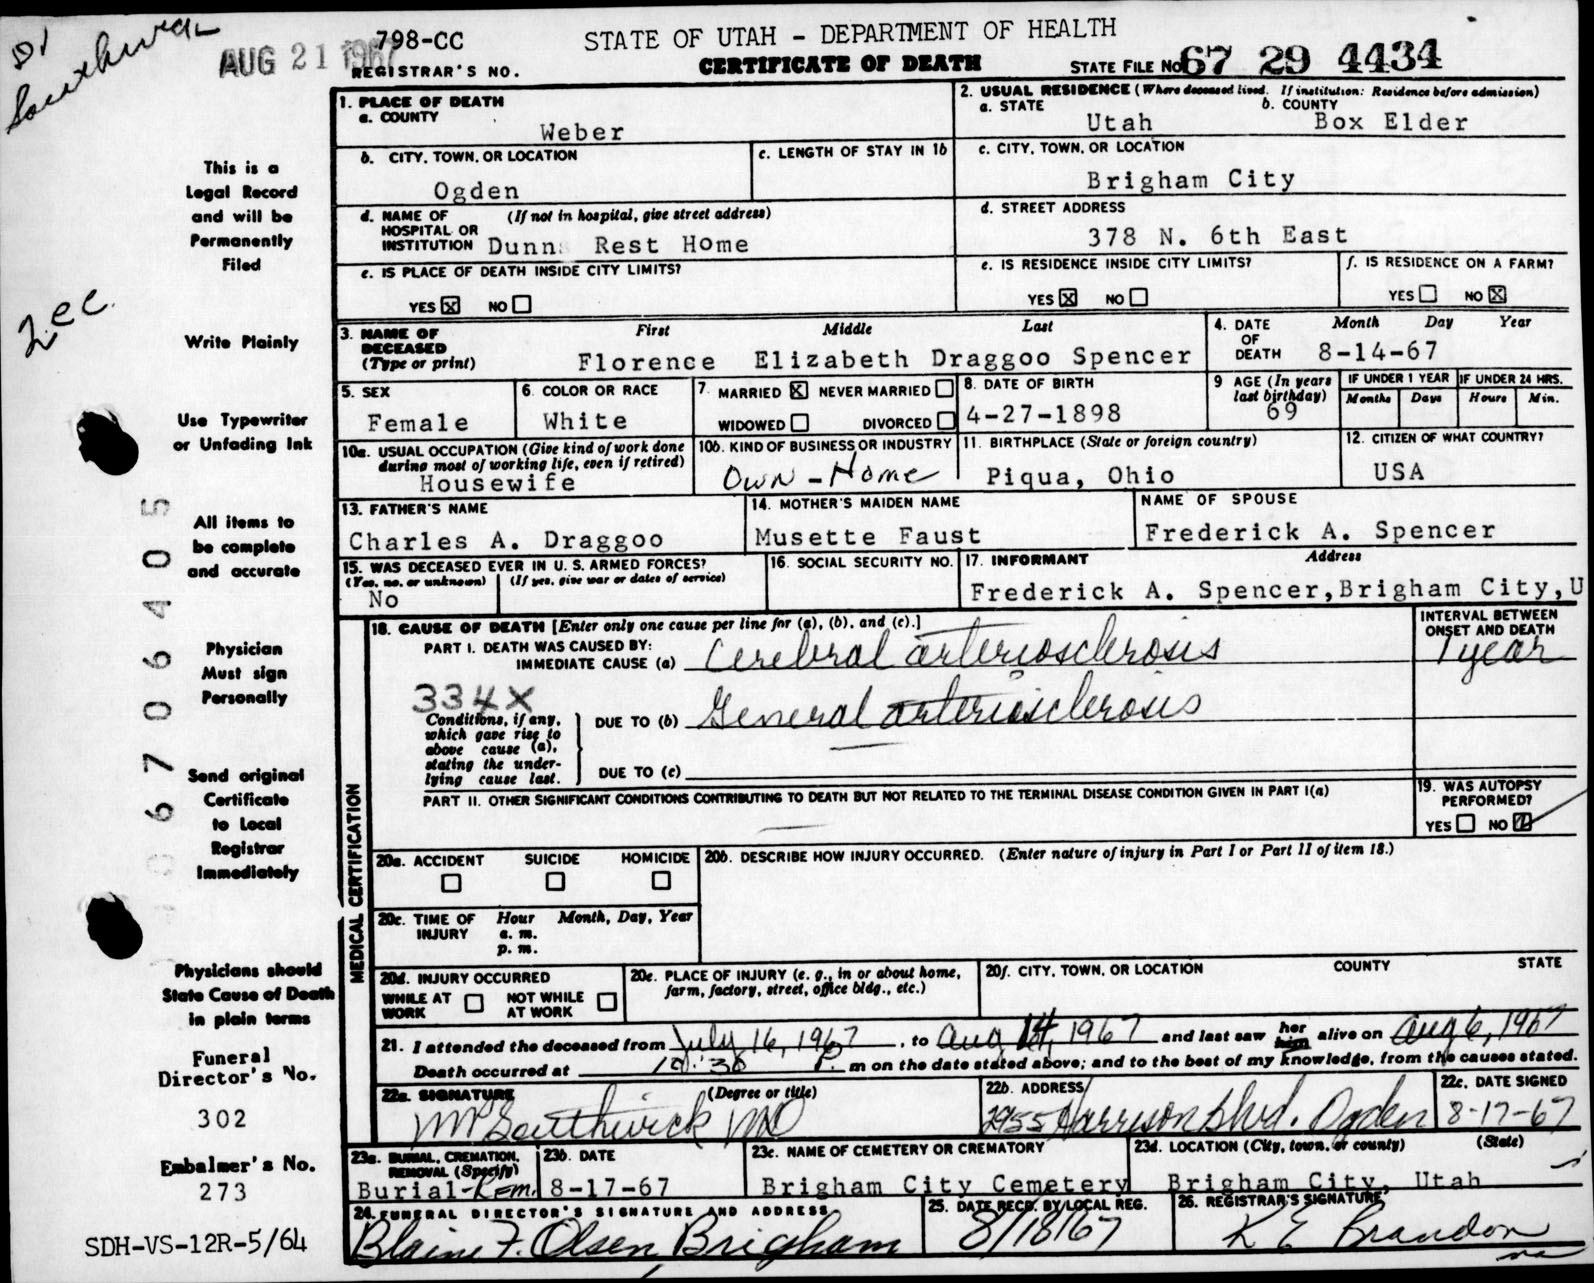 Dr
Southwick
AUG 21 1967
798-CC
REGISTRAR'S NO.
STATE OF UTAH - DEPARTMENT OF HEALTH
CERTIFICATE OF DEATH
STATE FILE NO. 67 29 4434
This is a
Legal Record
and will be
Permanently
Filed
Write Plainly
Use Typewriter
or Unfading Ink
All items to
be complete
and accurate
Physician
Must sign
Personally
Send original
Certificate
to Local
Registrar
Immediately
Physicians should
State Cause of Death
in plain terms
Funeral
Director's No.
302
Embalmer's No.
273
SDH-VS-12R-5/64
06706405
1. PLACE OF DEATH
a. COUNTY
Weber
2. USUAL RESIDENCE (Where deceased lived. If institution: Residence before admission)
a. STATE b. COUNTY
Utah Box Elder
b. CITY, TOWN, OR LOCATION
Ogden
c. LENGTH OF STAY IN 1b
c. CITY, TOWN, OR LOCATION
Brigham City
d. NAME OF (If not in hospital, give street address)
HOSPITAL OR
INSTITUTION Dunn Rest Home
d. STREET ADDRESS
378 N. 6th East
e. IS PLACE OF DEATH INSIDE CITY LIMITS?
YES ☒ NO ☐
e. IS RESIDENCE INSIDE CITY LIMITS?
YES ☒ NO ☐
f. IS RESIDENCE ON A FARM?
YES ☐ NO ☒
3. NAME OF First Middle Last
DECEASED
(Type or print) Florence Elizabeth Draggoo Spencer
4. DATE Month Day Year
OF
DEATH 8-14-67
5. SEX
Female
6. COLOR OR RACE
White
7. MARRIED ☒ NEVER MARRIED ☐
WIDOWED ☐ DIVORCED ☐
8. DATE OF BIRTH
4-27-1898
9 AGE (In years
last birthday)
69
IF UNDER 1 YEAR
Months Days
IF UNDER 24 HRS.
Hours Min.
10a. USUAL OCCUPATION (Give kind of work done
during most of working life, even if retired)
Housewife
10b. KIND OF BUSINESS OR INDUSTRY
Own-Home
11. BIRTHPLACE (State or foreign country)
Piqua, Ohio
12. CITIZEN OF WHAT COUNTRY?
USA
13. FATHER'S NAME
Charles A. Draggoo
14. MOTHER'S MAIDEN NAME
Musette Faust
NAME OF SPOUSE
Frederick A. Spencer
15. WAS DECEASED EVER IN U. S. ARMED FORCES?
(Yes, no, or unknown) (If yes, give war or dates of service)
No
16. SOCIAL SECURITY NO.
17. INFORMANT Address
Frederick A. Spencer,Brigham City,U
MEDICAL CERTIFICATION
18. CAUSE OF DEATH [Enter only one cause per line for (a), (b), and (c).]
PART I. DEATH WAS CAUSED BY:
IMMEDIATE CAUSE (a) Cerebral arteriosclerosis
INTERVAL BETWEEN
ONSET AND DEATH
1 year
334X
Conditions, if any,
which gave rise to
above cause (a),
stating the under-
lying cause last.
DUE TO (b) General arteriosclerosis
DUE TO (c)
PART II. OTHER SIGNIFICANT CONDITIONS CONTRIBUTING TO DEATH BUT NOT RELATED TO THE TERMINAL DISEASE CONDITION GIVEN IN PART I(a)
19. WAS AUTOPSY
PERFORMED?
YES ☐ NO ☒
20a. ACCIDENT SUICIDE HOMICIDE
☐ ☐ ☐
20b. DESCRIBE HOW INJURY OCCURRED. (Enter nature of injury in Part I or Part II of item 18.)
20c. TIME OF Hour Month, Day, Year
INJURY a. m.
p. m.
20d. INJURY OCCURRED
WHILE AT ☐ NOT WHILE ☐
WORK AT WORK
20e. PLACE OF INJURY (e. g., in or about home,
farm, factory, street, office bldg., etc.)
20f. CITY, TOWN, OR LOCATION COUNTY STATE
21. I attended the deceased from July 16, 1967, to Aug 14, 1967 and last saw her him alive on Aug 6, 1967
Death occurred at 10:30 P. m on the date stated above; and to the best of my knowledge, from the causes stated.
22a. SIGNATURE (Degree or title)
Southwick MD
22b. ADDRESS
2955 Harrison Blvd. Ogden
22c. DATE SIGNED
8-17-67
23a. BURIAL, CREMATION,
REMOVAL (Specify)
Burial-Rem.
23b. DATE
8-17-67
23c. NAME OF CEMETERY OR CREMATORY
Brigham City Cemetery
23d. LOCATION (City, town, or county) (State)
Brigham City, Utah
24. FUNERAL DIRECTOR'S SIGNATURE AND ADDRESS
Blaine F. Olsen, Brigham
25. DATE RECD. BY LOCAL REG.
8/18/67
26. REGISTRAR'S SIGNATURE
K E Brandon